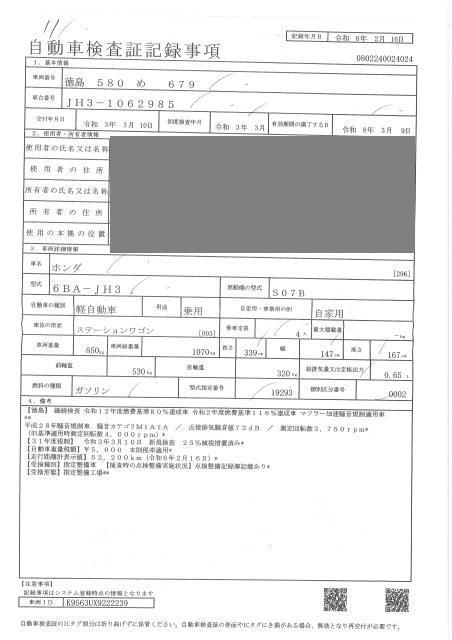 11/
記録年月日 令和 6年 2月 16日
自動車検査証記録事項
0802240024024
1．基本情報
車両番号 徳島 580 め 679
車台番号 JH3-1062985
交付年月日 令和 3年 3月 10日 初度検査年月 令和 3年 3月 有効期間の満了する日 令和 8年 3月 9日
2．使用者・所有者情報
使用者の氏名又は名称
使用者の住所
所有者の氏名又は名称
所有者の住所
使用の本拠の位置
3．車両詳細情報
車名 ホンダ [296]
型式 6BA-JH3 原動機の型式 S07B
自動車の種別 軽自動車 用途 乗用 自家用・事業用の別 自家用
車体の形状 ステーションワゴン [003] 乗車定員 4人 最大積載量 -kg
車両重量 850kg 車両総重量 1070kg 長さ 339cm 幅 147cm 高さ 167cm
前軸重 530kg 後軸重 320kg 総排気量又は定格出力 0.65 L
燃料の種類 ガソリン 型式指定番号 19293 類別区分番号 0002
4．備考
【徳島】 継続検査 令和12年度燃費基準80％達成車 令和2年度燃費基準116％達成車 マフラー加速騒音規制適用車
**
平成28年騒音規制車 騒音カテゴリM1A1A ／ 近接排気騒音値72dB ／ 測定回転数3，750rpm*
(旧基準適用時測定回転数4，000rpm)*
【31年度税制】 令和3年3月10日 新規検査 25％減税措置済み*
【自動車重量税額】¥5，000 本則税率適用*
【走行距離計表示値】52，200km (令和6年2月16日)*
【受検種別】指定整備車 【検査時の点検整備実施状況】点検整備記録簿記載あり*
【受検形態】指定整備工場**
【注意事項】
記録事項はシステム登録時点の情報となります
車両ID K9563UX9222239
自動車検査証のICタグ部分は折り曲げずに保管ください。自動車検査証の券面やICタグにき損がある場合、無効となり再交付が必要です。